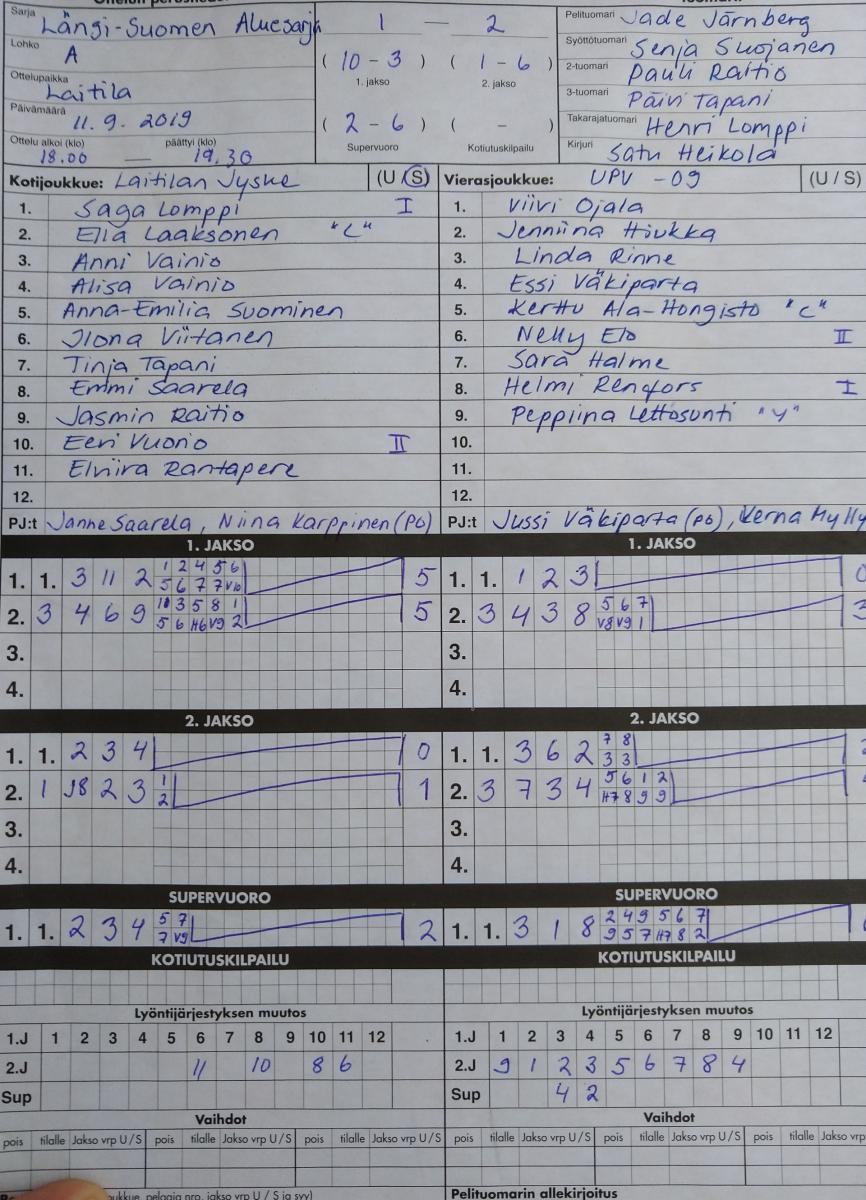 Sarja Länsi-Suomen Aluesarja
Lohko A
Ottelupaikka Laitila
Päivämäärä 11.9.2019
Ottelu alkoi (klo) päättyi (klo)
18.00 — 19.30
1 — 2
( 10 - 3 ) ( 1 - 6 )
1. jakso 2. jakso
( 2 - 6 ) ( - )
Supervuoro Kotiutuskilpailu
Pelituomari Jade Järnberg
Syöttötuomari Senja Suojanen
2-tuomari Pauli Raitio
3-tuomari Päivi Tapani
Takarajatuomari Henri Lomppi
Kirjuri Satu Heikola
Kotijoukkue: Laitilan Jyske (U / S)
1. Saga Lomppi I
2. Ella Laaksonen "C"
3. Anni Vainio
4. Alisa Vainio
5. Anna-Emilia Suominen
6. Ilona Viitanen
7. Tinja Tapani
8. Emmi Saarela
9. Jasmin Raitio
10. Eeri Vuorio II
11. Elviira Rantapere
12.
PJ:t Janne Saarela, Niina Karppinen (PÖ)
Vierasjoukkue: UPV -09 (U / S)
1. Viivi Ojala
2. Jenniina Hiukka
3. Linda Rinne
4. Essi Väkiparta
5. Kerttu Ala-Hongisto "C"
6. Nelly Elo II
7. Sara Halme
8. Helmi Renfors I
9. Peppiina Lettosunti "Y"
10.
11.
12.
PJ:t Jussi Väkiparta (pö), Verna Mylly
1. JAKSO
1. 1. 3 11 2 1 2 4 5 6 5
5 6 7 7 V10
2. 3 4 6 9 10 3 5 8 1 5
5 6 H6 V9 2
3.
4.
2. JAKSO
1. 1. 2 3 4 0
2. 1 J8 2 3 1 1
2
3.
4.
SUPERVUORO
1. 1. 2 3 4 5 7 2
7 V9
KOTIUTUSKILPAILU
Lyöntijärjestyksen muutos
1.J 1 2 3 4 5 6 7 8 9 10 11 12
2.J 11 10 8 6
Sup
Vaihdot
pois tilalle Jakso vrp U/S pois tilalle Jakso vrp U/S pois tilalle Jakso vrp U/S
1. JAKSO
1. 1. 1 2 3 0
2. 3 4 3 8 5 6 7 3
V8 V9 1
3.
4.
2. JAKSO
1. 1. 3 6 2 7 8
3 3
2. 3 7 3 4 5 6 1 2
H7 8 9 9
3.
4.
SUPERVUORO
1. 1. 3 1 8 2 4 9 5 6 7
9 5 7 H7 8 2
KOTIUTUSKILPAILU
Lyöntijärjestyksen muutos
1.J 1 2 3 4 5 6 7 8 9 10 11 12
2.J 9 1 2 3 5 6 7 8 4
Sup 4 2
Vaihdot
pois tilalle Jakso vrp U/S pois tilalle Jakso vrp U/S pois tilalle Jakso vrp
joukkue, pelaaja nro, jakso vrp U / S ja syy)
Pelituomarin allekirjoitus